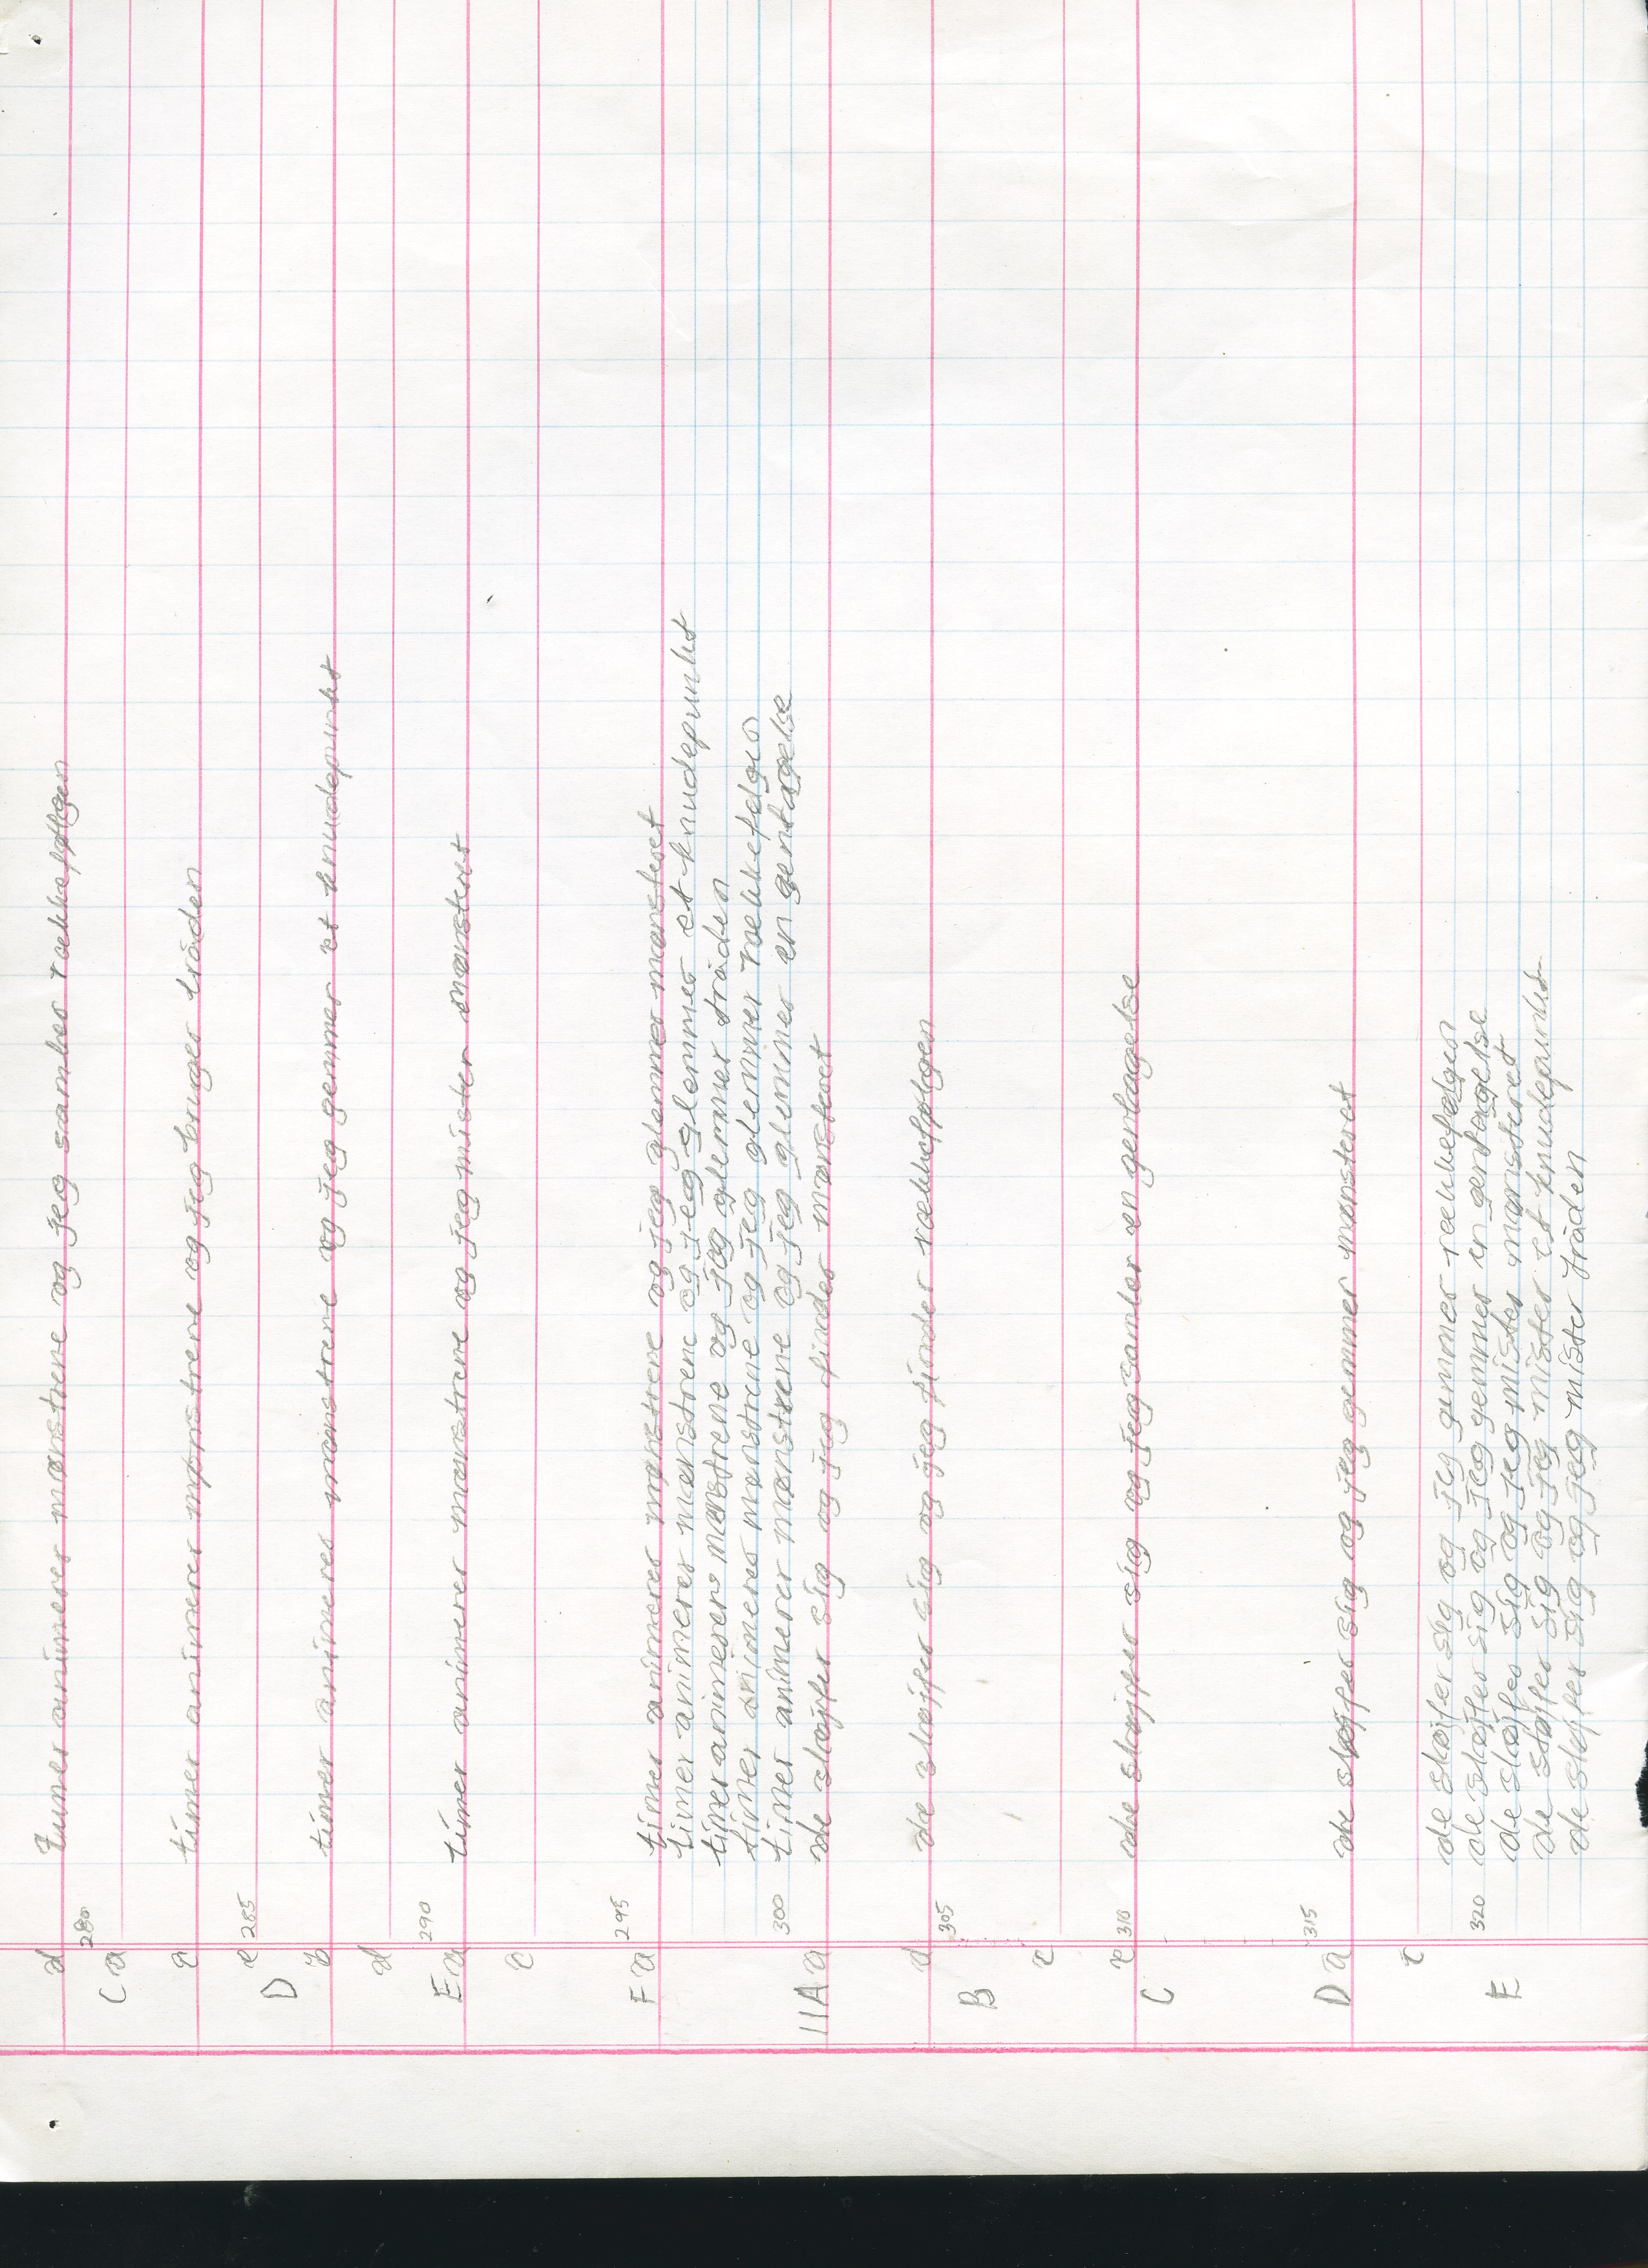 d timer animerer mønstrene og jeg samler rækkefølgen
280
C a
c timer animerer mønstrene og jeg bruger tråden
e 285
D
b timer animerer mønstrene og jeg gemmer et knudepunkt
d
290
E a timer animerer mønstrene og jeg mister mønsteret
c
295
F a timer animerer mønstrene og jeg glemmer mønsteret
timer animerer mønstrene og jeg glemmer et knudepunkt
timer animerer mønstrene og jeg glemmer tråden
timer animerer mønstrene og jeg glemmer rækkefølgen
300 timer animerer mønstrene og jeg glemmer en gentagelse
11A a de sløjfer sig og jeg finder mønsteret
d de sløjfer sig og jeg finder rækkefølgen
305
B
c
e 310 de sløjfer sig og jeg samler en gentagelse
C
315
D a de sløjfer sig og jeg gemmer mønsteret
c
de sløjfer sig og jeg gemmer rækkefølgen
320 de sløjfer sig og jeg gemmer en gentagelse
E de sløjfer sig og jeg mister mønsteret
de sløjfer sig og jeg mister et knudepunkt
de sløjfer sig og jeg mister tråden